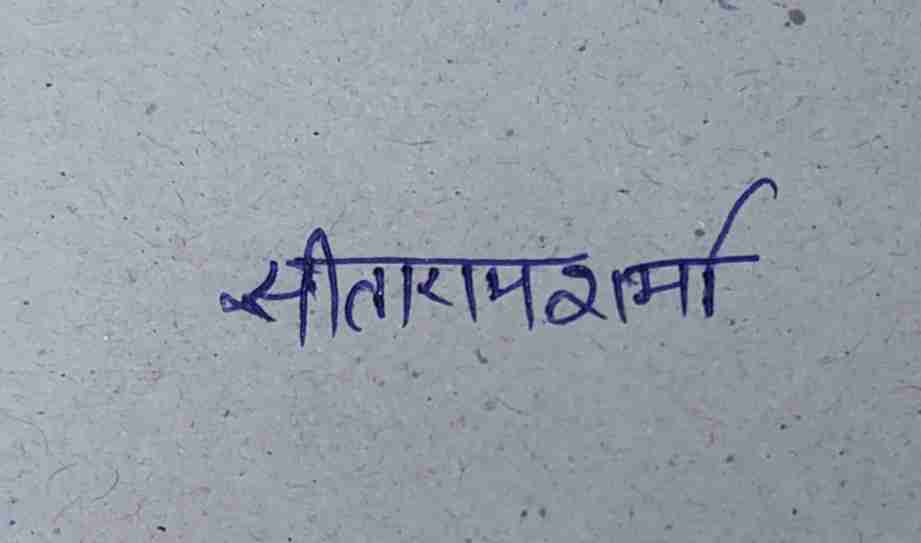 सीताराम शर्मा